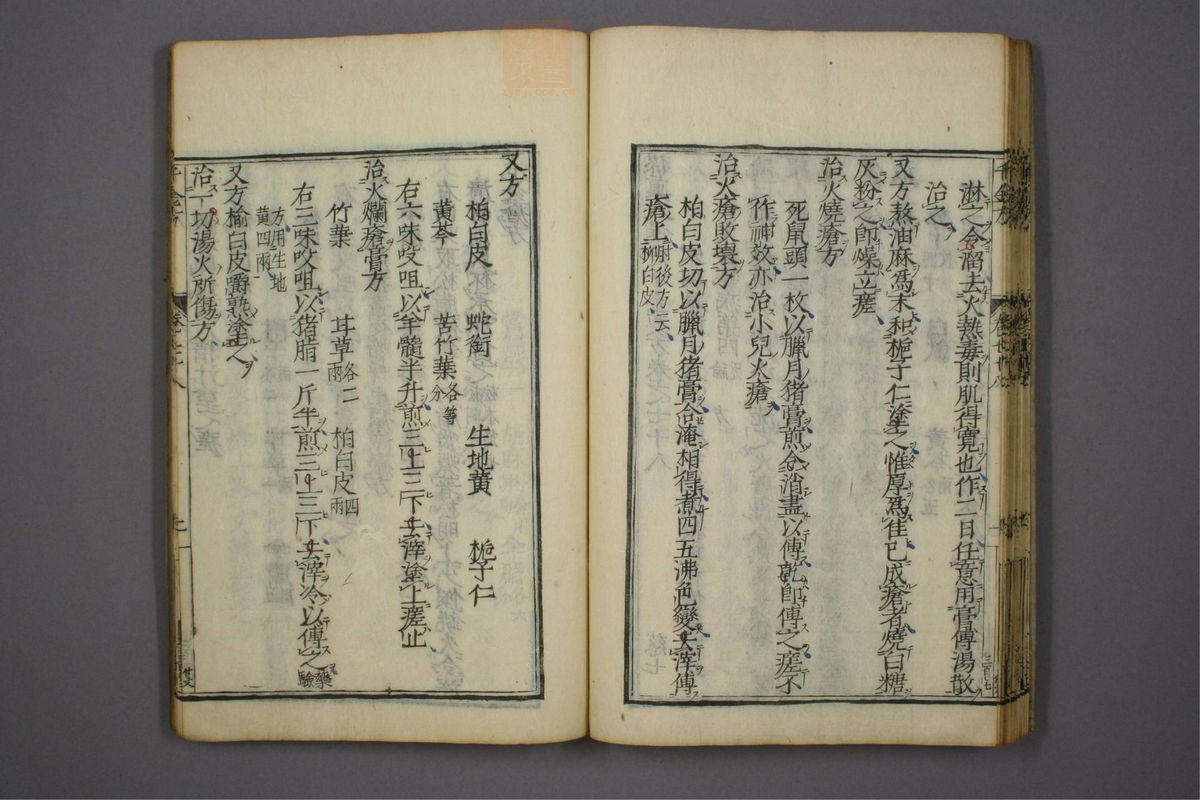 淋之令溜去火熱毒則肌得寬也作二日任意用膏傅湯散
治之
又方熬油麻爲末和梔子仁塗之惟厚爲佳已成瘡者燒白糖
灰粉之卽燥立瘥
治火燒瘡方
死鼠頭一枚以臘月猪膏煎令消盡以傅乾卽傅之瘥不
作瘢神效亦治小兒火瘡
治火瘡敗壞方
柏白皮切以臘月猪膏合淹相得煮四五沸色變去滓傅
瘡上肘後方云柳白皮
又方
柏白皮 蛇銜 生地黃 梔子仁
黃芩 苦竹葉各等分
右六味㕮咀以羊髓半升煎三上三下去滓塗上瘥止
治火爛瘡膏方
竹葉 甘草各二兩 柏白皮四兩
右三味㕮咀以猪脂一斤半煎三上三下去滓冷以傅之
方用生地黃四兩
又方榆白皮嚼熟塗之
治一切湯火所傷方